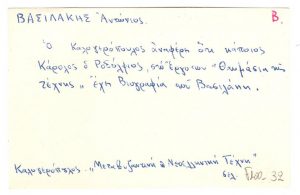 ΒΑΣΙΛΑΚΗΣ Ἀντώνιος. Β.
Ὁ Καλογερόπουλος ἀναφέρει ὅτι κάποιος
Κάρολος ὁ Ροδόλφιος, στὸ ἔργον του "Θαυμάσια τῆς
τέχνης" ἔχει Βιογραφία τοῦ Βασιλάκη.
Καλογερόπουλος. "Μεταβυζαντινὴ & Νεοελληνικὴ Τέχνη"
σελ. 32